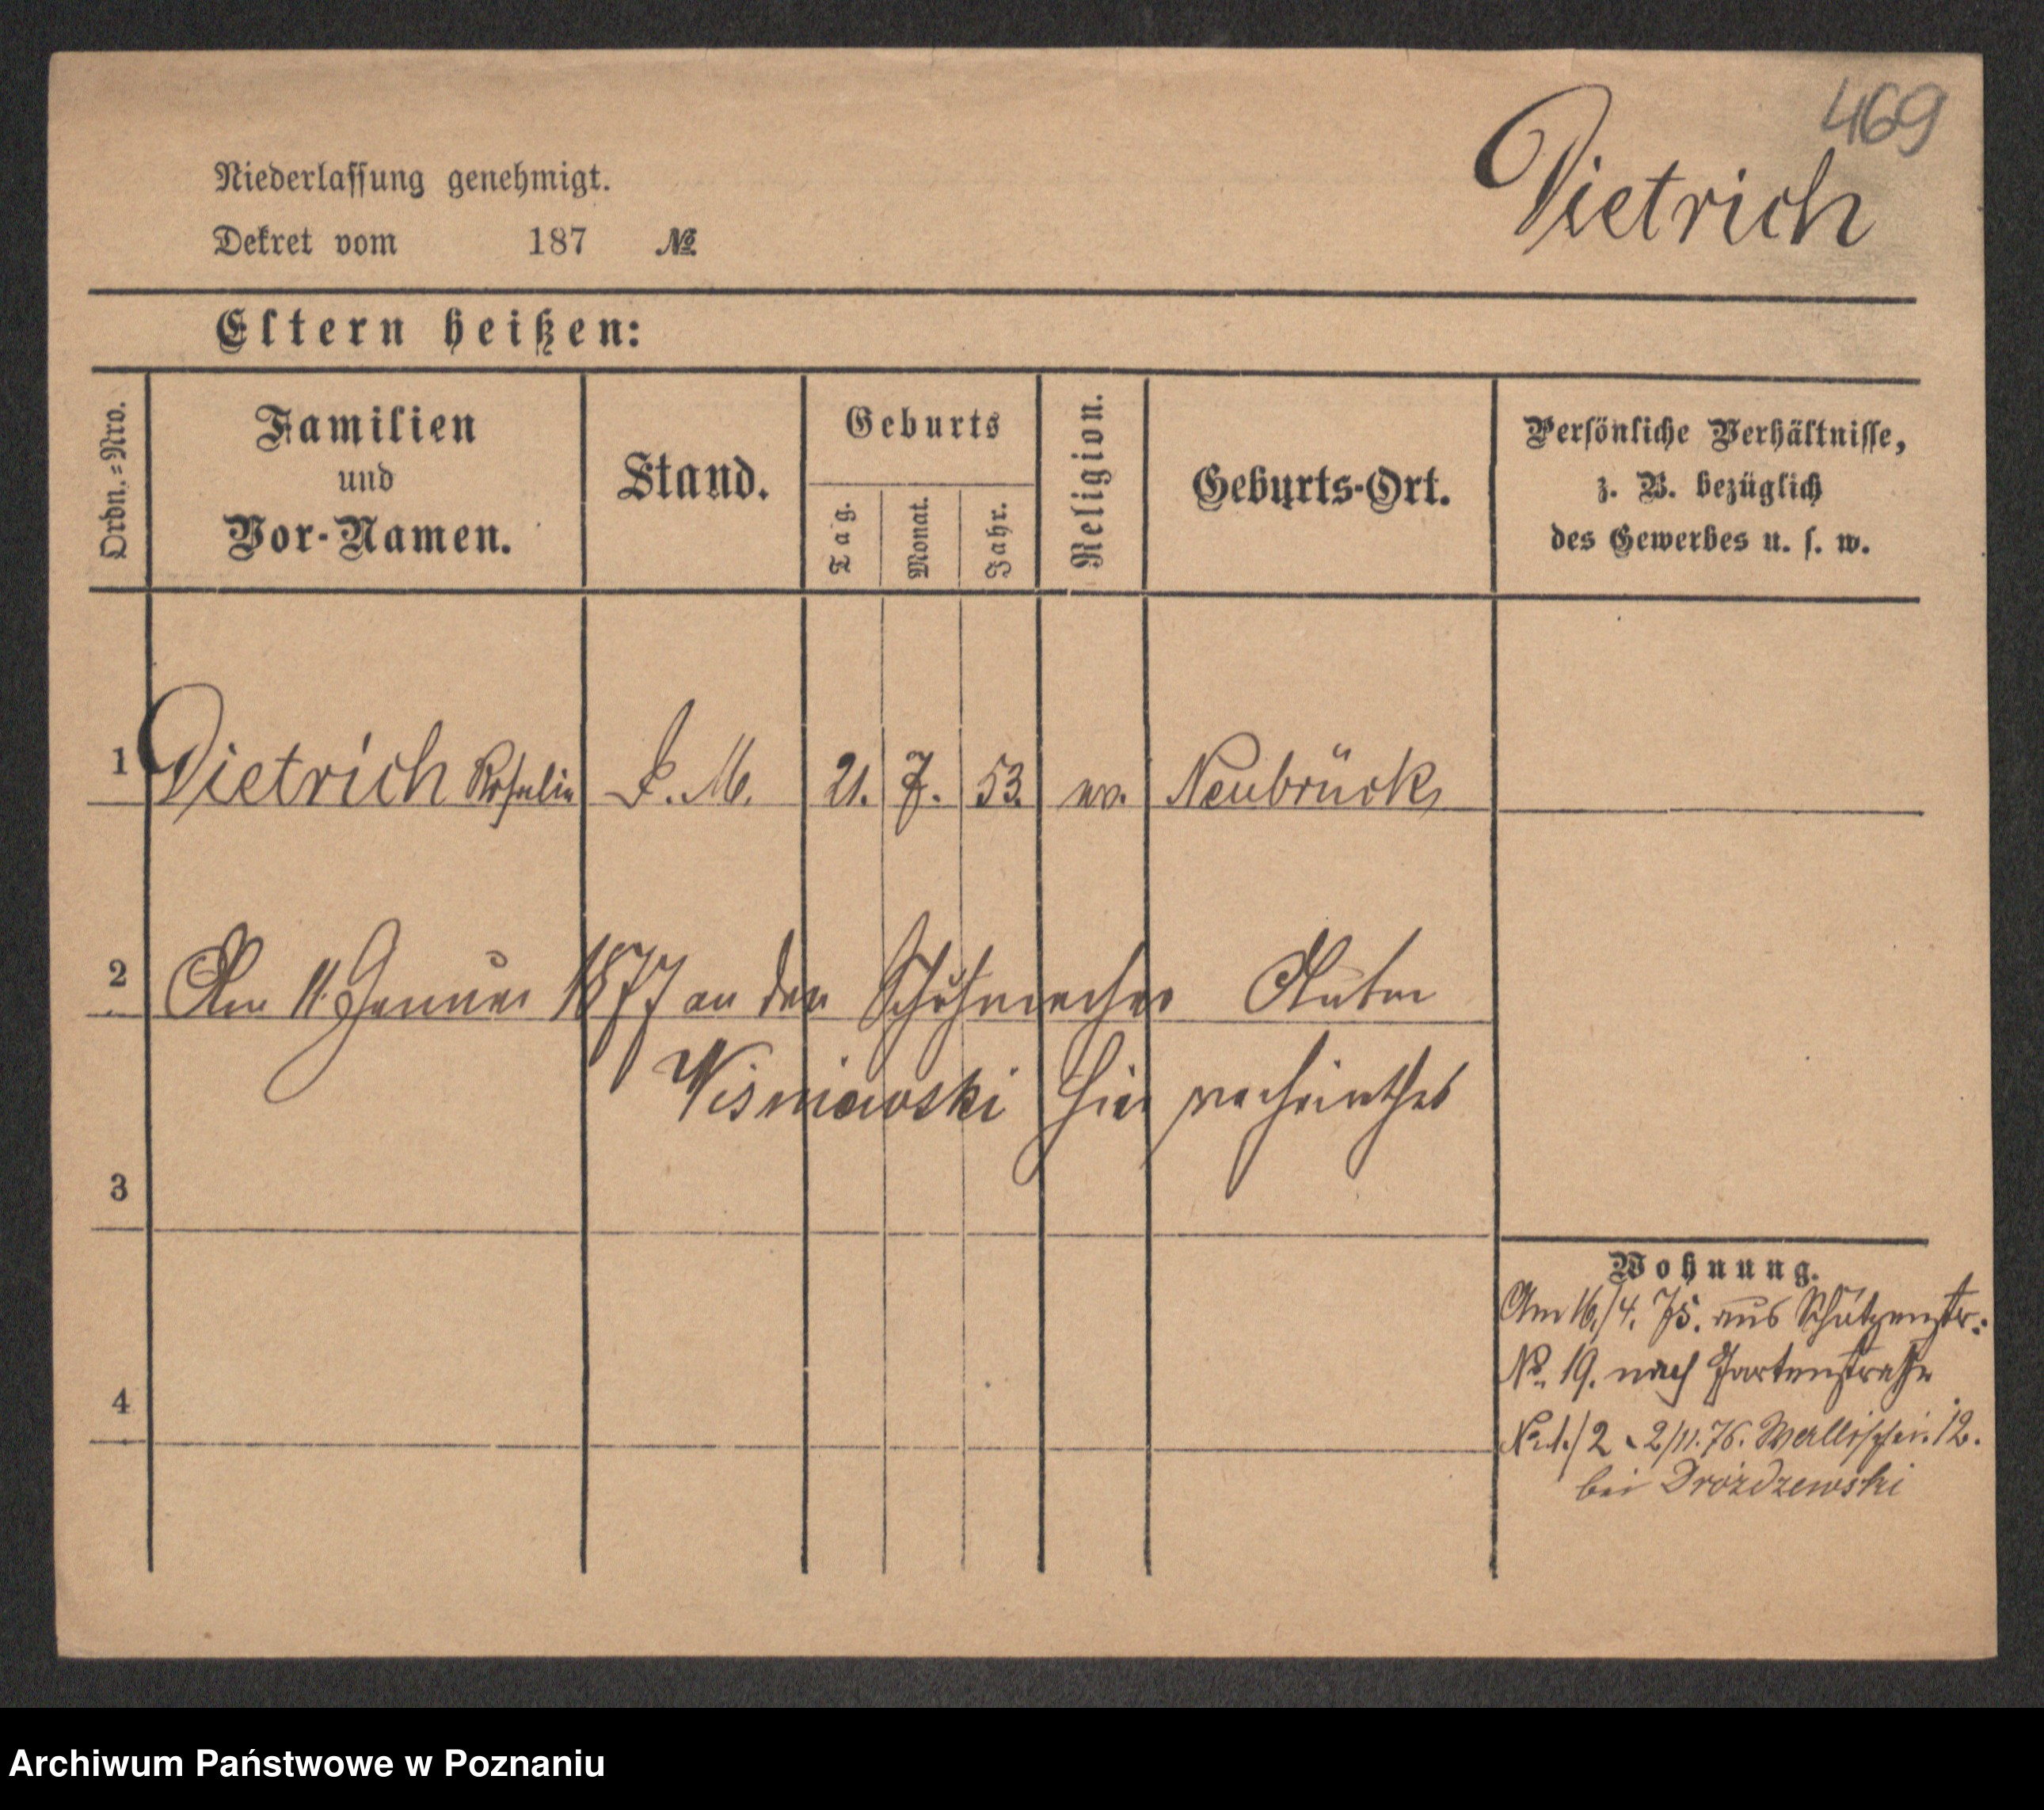 469
Dietrich
Niederlassung genehmigt.
Dekret vom 187 №
Eltern heißen:
Ordn.=Nro.
Familien
und
Vor-Namen.
Stand.
Geburts
Tag.
Monat.
Jahr.
Religion.
Geburts-Ort.
Persönliche Verhältnisse,
z. B. bezüglich
des Gewerbes u. s. w.
1 Dietrich Rosalie D. M. 21. 7. 53. ev. Neubrück
2 Am 11. Januar 1877 an den Schuhmacher Anton
Wisniewski hier verheirathet
3
Wohnung.
Am 16./4. 75. aus Schützenstr:
No. 19. nach Gartenstraße
2/11. 76. Wallischei. 12.
4
bei Drozdzewski
Archiwum Państwowe w Poznaniu